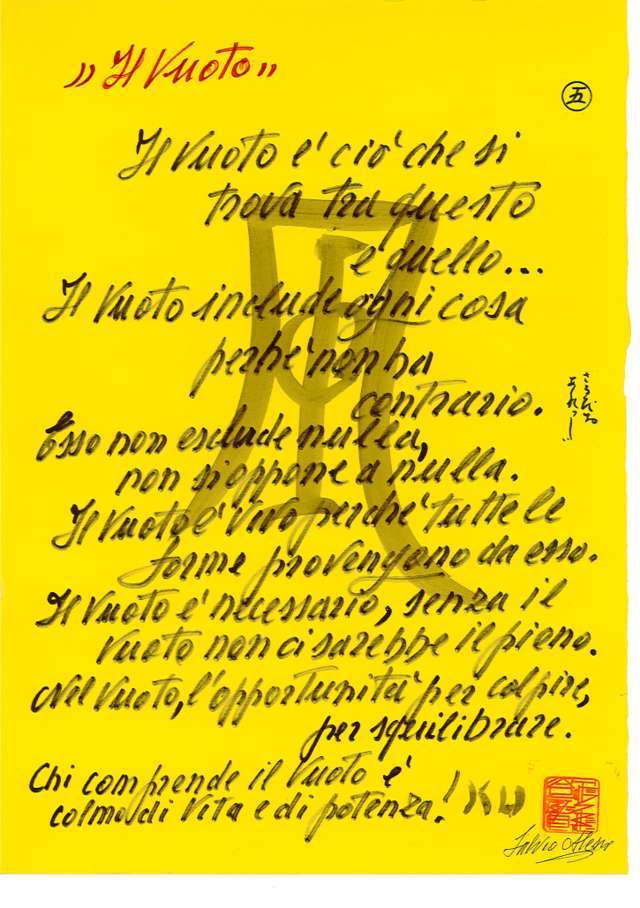 „Il Vuoto"
五
Il Vuoto è ciò che si
trova tra questo
e quello...
Il Vuoto include ogni cosa
perché non ha
contrario.
Esso non esclude nulla,
non si oppone a nulla.
Il Vuoto è vivo perché tutte le
forme provengono da esso.
Il Vuoto è necessario, senza il
Vuoto non ci sarebbe il pieno.
Nel Vuoto, l'opportunità per colpire,
per squilibrare.
Chi comprende il Vuoto è
colmo di Vita e di potenza!
KU